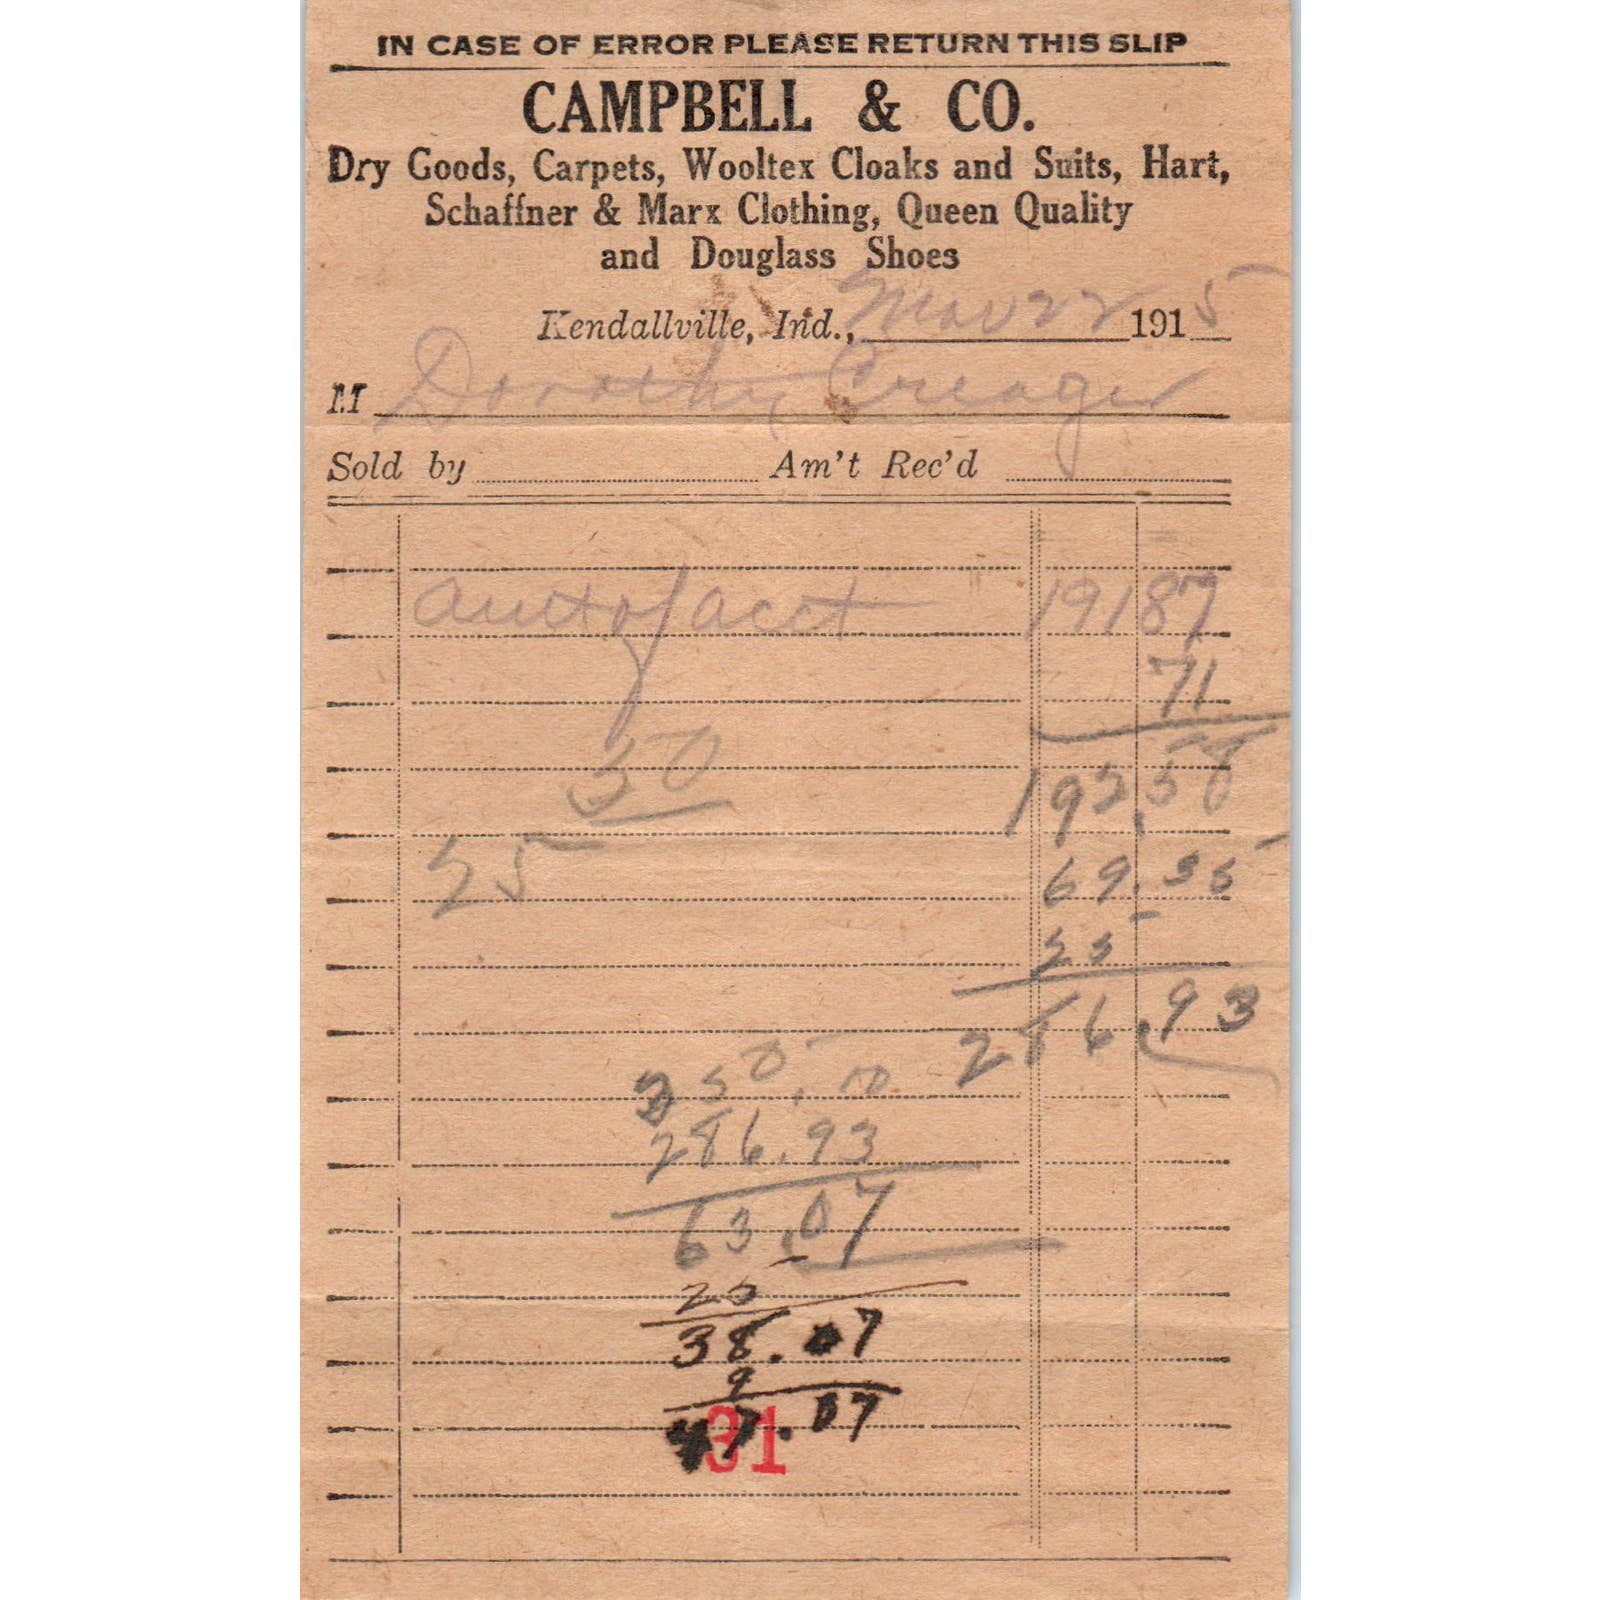 IN CASE OF ERROR PLEASE RETURN THIS SLIP
CAMPBELL & CO.
Dry Goods, Carpets, Wooltex Cloaks and Suits, Hart,
Schaffner & Marx Clothing, Queen Quality
and Douglass Shoes
Kendallville, Ind., Nov 22 1915
M Dorothy Creager
Sold by Am't Rec'd
amt of acct 191 87
71
50
192.58
25
69.35
25
286.93
350.00
286.93
63.07
25
38.07
9
47.07
31